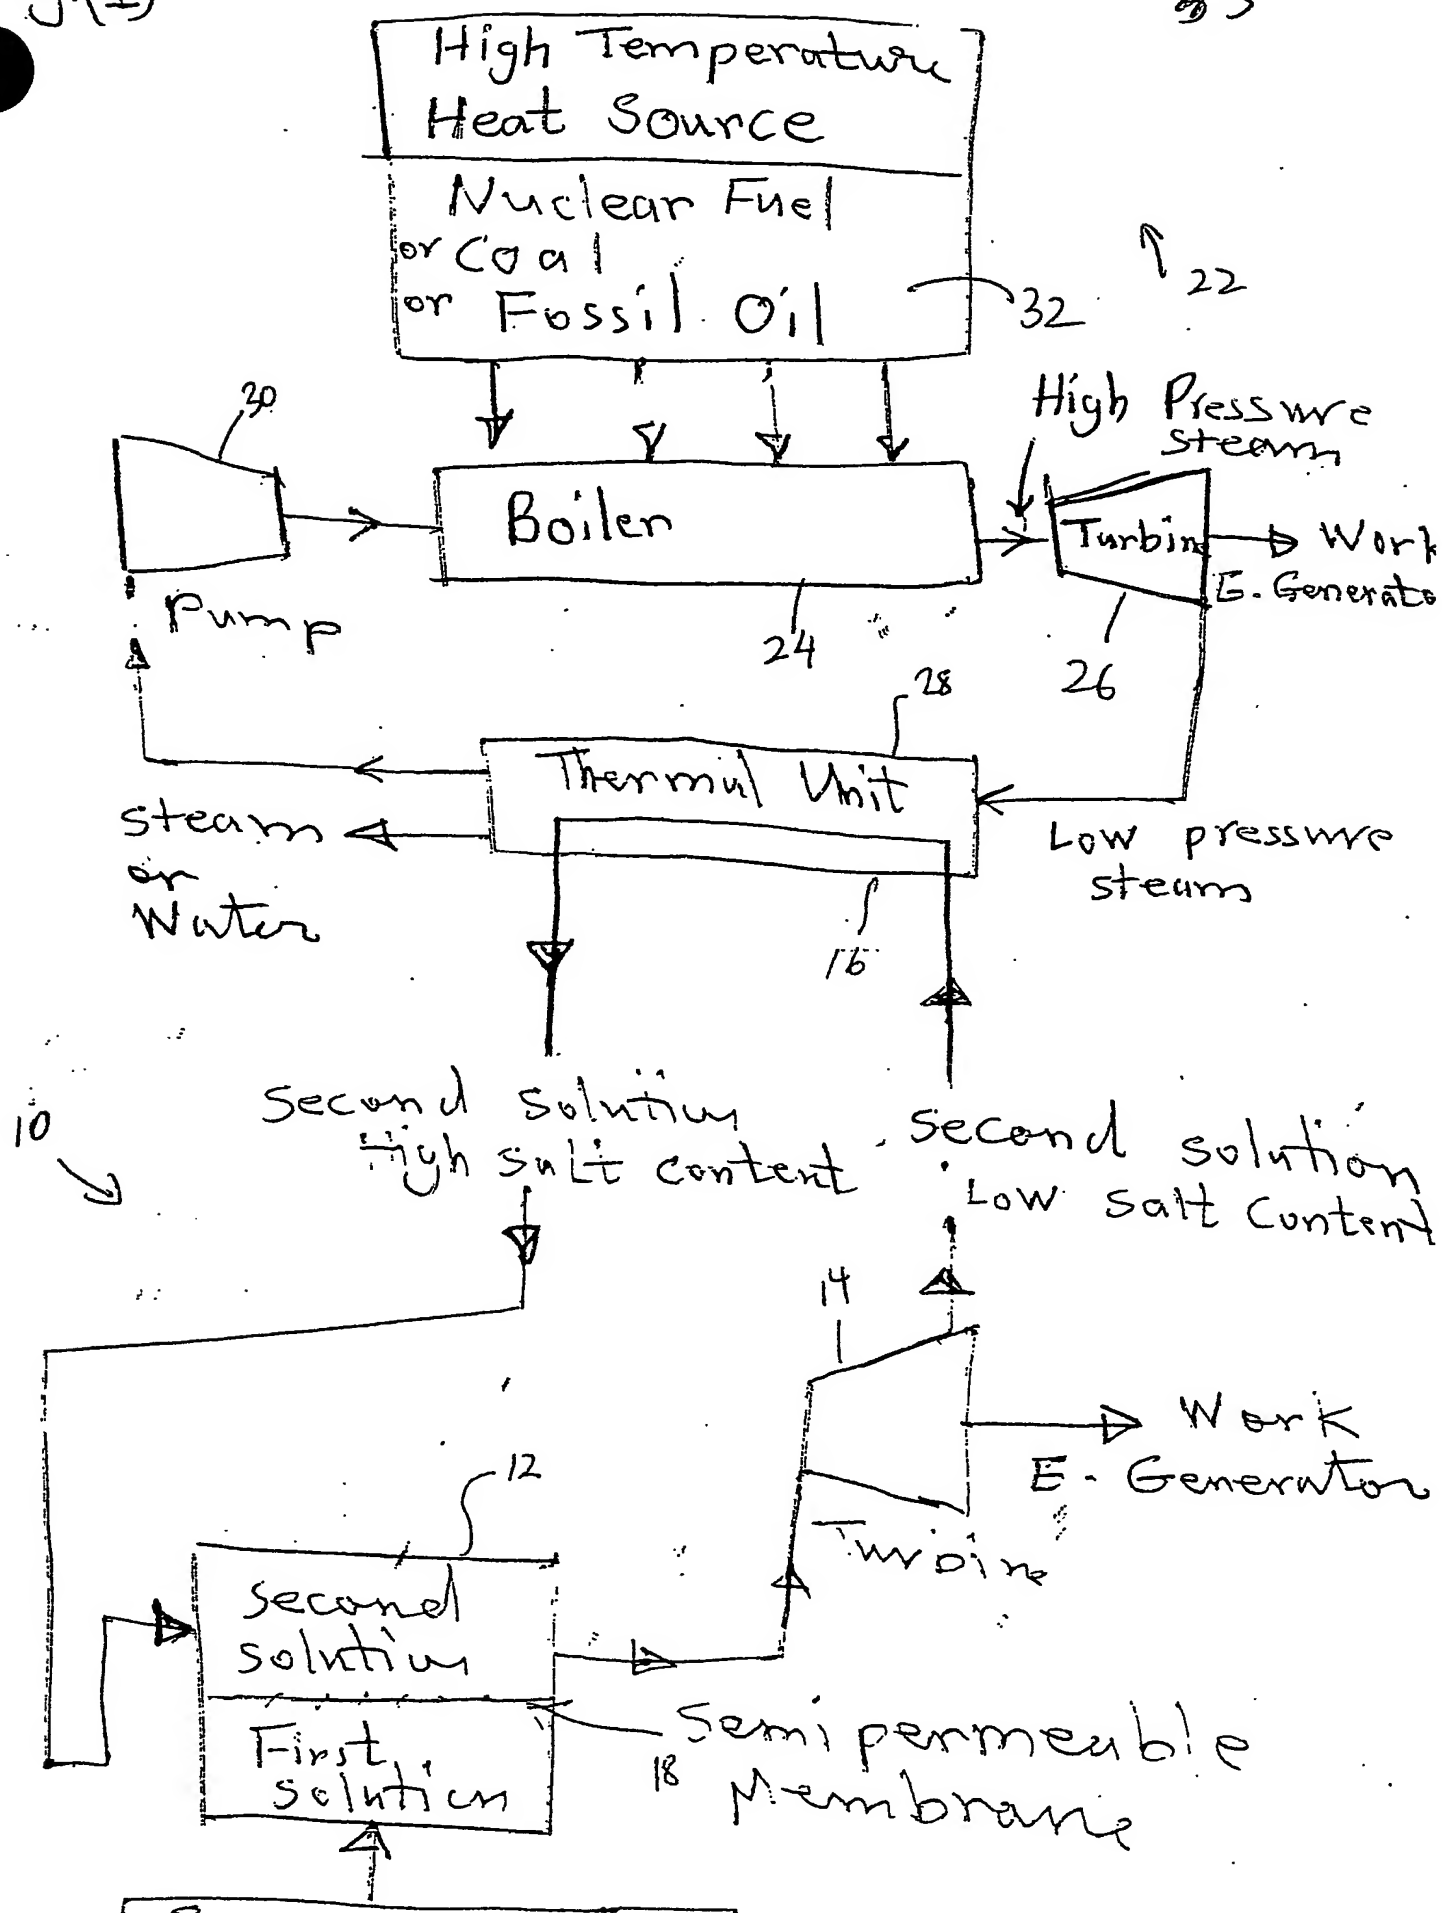 High Temperature
Heat Source
Nuclear Fuel
or Coal
or Fossil Oil
32
22
30
High Pressure
steam
Boiler
Turbin
Work
E. Generato
Pump
24
26
28
Thermal Unit
steam
or
Water
Low pressure
steam
16
10
second solution
High salt content
second solution
Low Salt Content
14
Work
E - Generator
12
Turbine
second
solution
First
solution
18
Semipermeable
Membrane